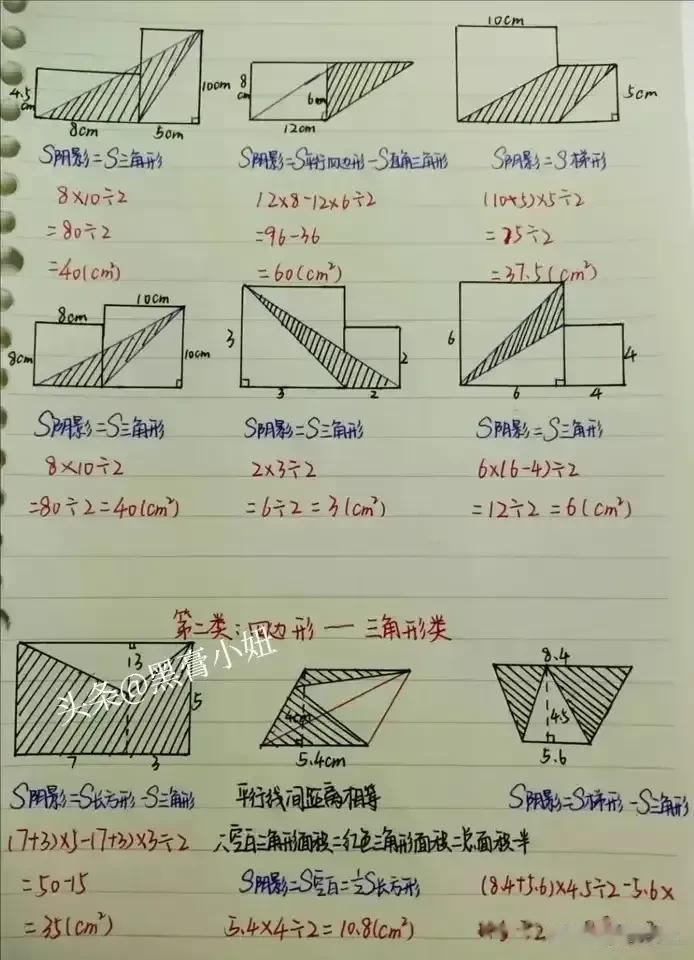 10cm
4.5cm
10cm
8cm
5cm
8cm
6cm
12cm
5cm
S阴影=S三角形
S阴影=S平行四边形-S直角三角形
S阴影=S梯形
8×10÷2
12×8-12×6÷2
(10+5)×5÷2
=80÷2
=96-36
=75÷2
=40(cm²)
=60(cm²)
=37.5(cm²)
8cm
10cm
8cm
10cm
3
2
3
2
6
4
6
4
S阴影=S三角形
S阴影=S三角形
S阴影=S三角形
8×10÷2
2×3÷2
6×(6-4)÷2
=80÷2=40(cm²)
=6÷2=3(cm²)
=12÷2=6(cm²)
第二类:四边形—三角形类
头条@黑膏小妞
3
5
7
3
4cm
5.4cm
8.4
4.5
5.6
S阴影=S长方形-S三角形
平行线间距离相等
S阴影=S梯形-S三角形
(7+3)×5-(7+3)×3÷2
∴空白三角形面积=红色三角形面积=总面积一半
=50-15
S阴影=S空白=½S长方形
(8.4+5.6)×4.5÷2-5.6×
=35(cm²)
5.4×4÷2=10.8(cm²)
÷2